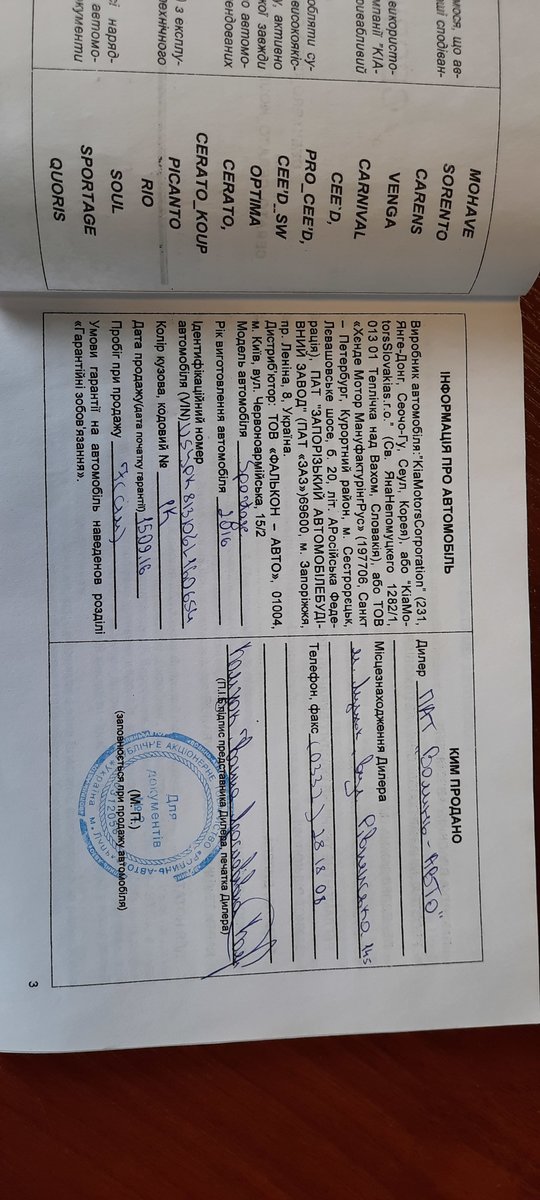 мося, що ав-
ші сподіван-
використо-
мпанії "KIA-
ривабливий
обляти су-
високоякіс-
у, активно
кої завжди
о автомо-
ендованих
) з експлу-
ехнічного
сі наряд-
автомо-
кументи
MOHAVE
SORENTO
CARENS
VENGA
CARNIVAL
CEE`D,
PRO_CEE'D,
CEE'D_SW
OPTIMA
CERATO,
CERATO_KOUP
PICANTO
RIO
SOUL
SPORTAGE
QUORIS
ІНФОРМАЦІЯ ПРО АВТОМОБІЛЬ
Виробник автомобіля:"KiaMotorsCorporation" (231,
Янге-Донг, Сеочо-Гу, Сеул, Корея), або "KiaMo-
torsSlovakias.r.o." (Св. ЯнаНепомуцкего 1282/1,
013 01 Теплічка над Вахом, Словакія), або ТОВ
«Хенде Мотор МануфактурінгРус» (197706, Санкт
– Петербург, Курортний район, м. Сестрорецьк,
Левашовське шосе, б. 20, літ. АРосійська Феде-
рація), ПАТ "ЗАПОРІЗЬКИЙ АВТОМОБІЛЕБУДІ-
ВНИЙ ЗАВОД" (ПАТ «ЗАЗ»)69600, м. Запоріжжя,
пр. Леніна, 8, Україна.
Дистриб'ютор: ТОВ «ФАЛЬКОН – АВТО», 01004,
м. Київ, вул. Червоноармійська, 15/2
Модель автомобіля Sportage
Рік виготовлення автомобіля 2016
Ідентифікаційний номер
автомобіля (VIN)
Колір кузова, кодовий №
Дата продажу(дата початку гарантії) 150916
Пробіг при продажу 7 (сім)
Умови гарантії на автомобіль наведенов розділі
«Гарантійні зобов'язання».
КИМ ПРОДАНО
Дилер ПАТ "Волинь-Авто"
Місцезнаходження Дилера
м. Луцьк, вул Рівненська 145
Телефон, факс (0332) 28 18 08
(П.І.Б,підпис представника Дилера, печатка Дилера)
Для
документів
(М.П.)
(заповнюється при продажу автомобіля)
3